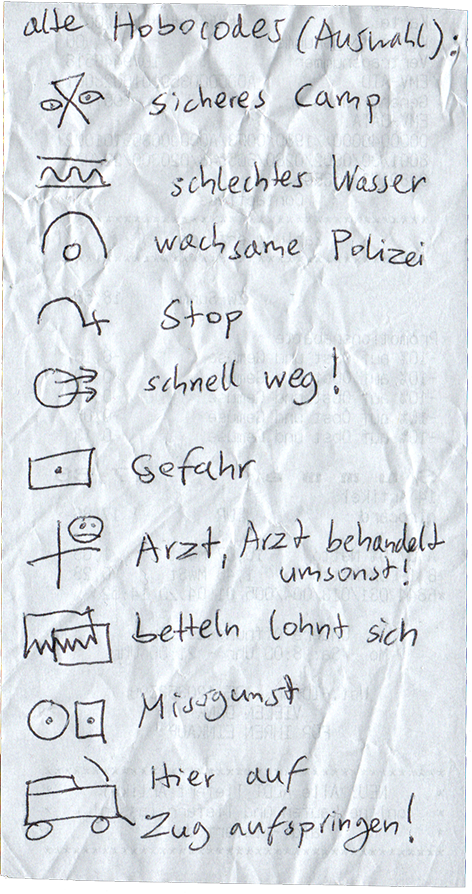 alte Hobocodes (Auswahl):
sicheres Camp
schlechtes Wasser
wachsame Polizei
Stop
schnell weg!
Gefahr
Arzt, Arzt behandelt
umsonst!
betteln lohnt sich
Missgunst
Hier auf
Zug aufspringen!